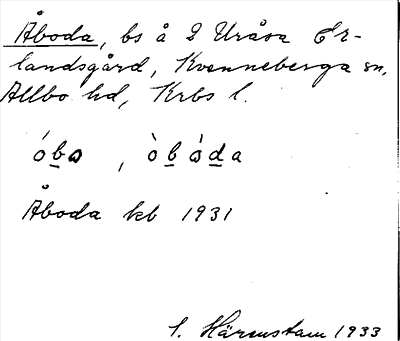 Åboda, bs å 2 Uråsa Er-
landsgård, Kvenneberga sn,
Allbo hd, Krbs l.
óbo , òbòda
Åboda kb 1931
S. Härenstam 1933